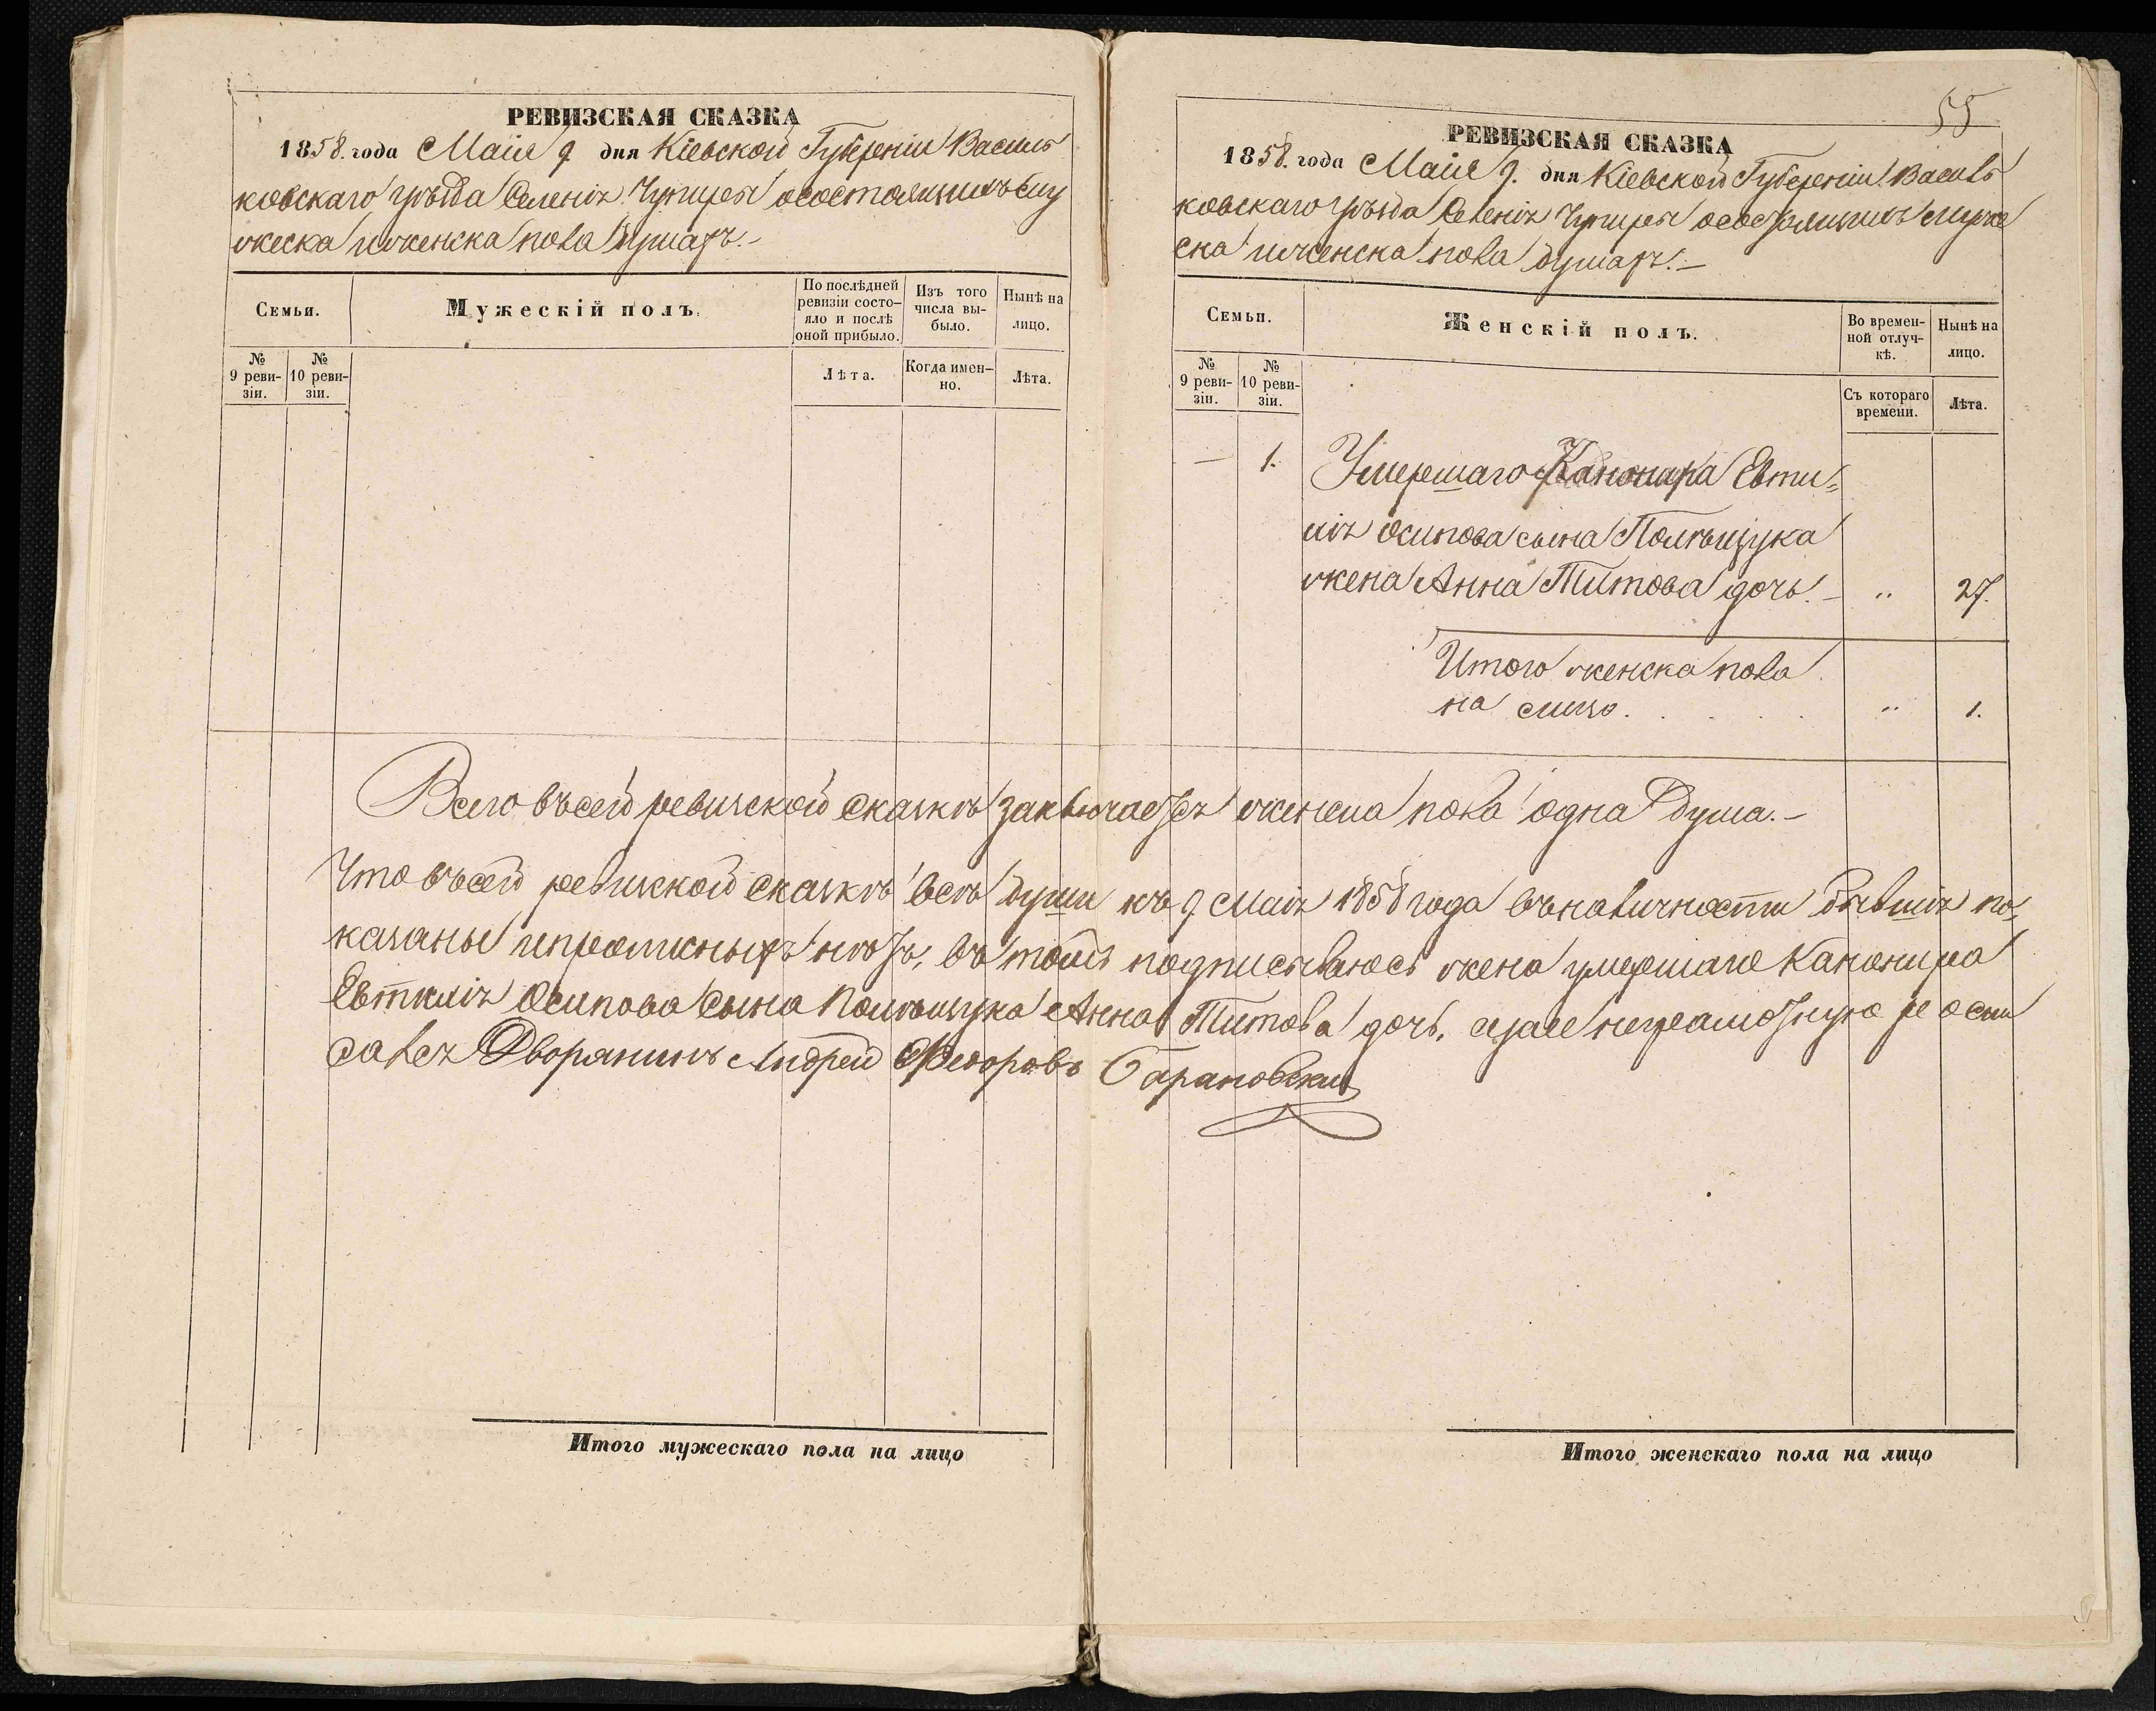 РЕВИЗСКАЯ СКАЗКА
1858. года Маія 9. дня Кіевской Губерніи Василь
ковскаго уѣзда Селенія Чупиры о состоящихъ му
жеска и женска пола душахъ.–
Семьи.
Мужескій полъ.
По послѣдней ревизіи состо-
яло и послѣ оной прибыло.
Изъ того числа вы-
было.
Нынѣ на лицо.
№ 9 реви-
зіи.
№ 10 реви-
зіи.
Лѣта.
Когда имен-
но.
Лѣта.
Итого мужескаго пола на лицо
55
РЕВИЗСКАЯ СКАЗКА
1858. года Маія 9. дня Кіевской Губерніи Василь
ковскаго уѣзда Селенія Чупиры о состоящихъ муже
ска и женска пола душахъ.–
Семьи.
Женскій полъ.
Во времен-
ной отлуч-
кѣ.
Нынѣ на лицо.
№ 9 реви-
зіи.
№ 10 реви-
зіи.
Съ котораго времени.
Лѣта.
— 1. Умершаго Канонира Евти=
мія Осипова сына Полѣщука
жена Анна Титова дочь.– „ 27.
Итого женска пола
на лицо. . . . . „ 1.
Всего въ сей ревизской сказкѣ заключается женска пола одна душа.–
Что въ сей ревизской сказкѣ всѣ души къ 9 Маія 1858 года въ наличности бывшія по=
казаны и прописныхъ нѣтъ, въ томъ подписываюсь жена умершаго Канонира
Евтимія Осипова сына Полѣщука Анна Титова дочь, а за неграмотную росписался Дворянинъ Андрей Федоровъ Барановскій
Итого женскаго пола на лицо